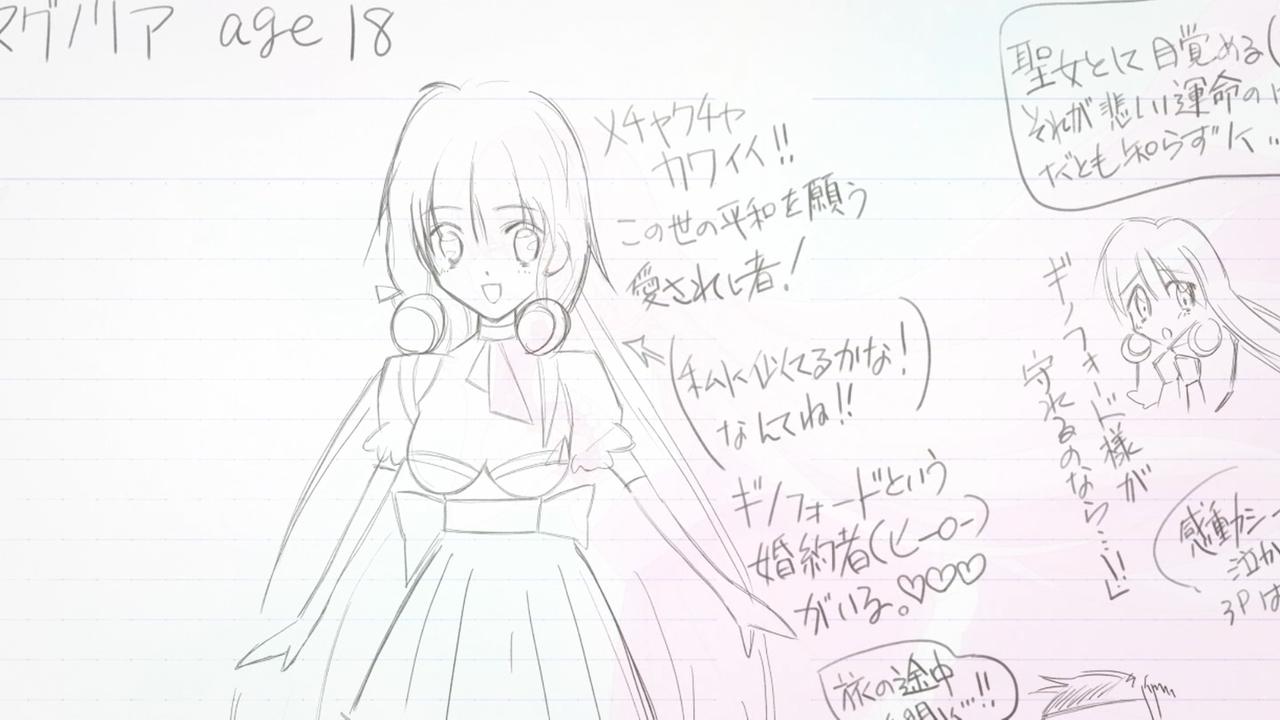 マグノリア age 18
メチャクチャ
カワイイ!!
この世の平和を願う
愛されし者!
(私に似てるかな!
なんてね!!)
ギノフォードという
婚約者(ヒーロー)
がいる。♡♡♡
旅の途中
聖女として目覚める(
それが悲しい運命の
だとも知らずに…
ギノフォード様が
守れるのなら…!!」
感動シー
泣か
3Pは